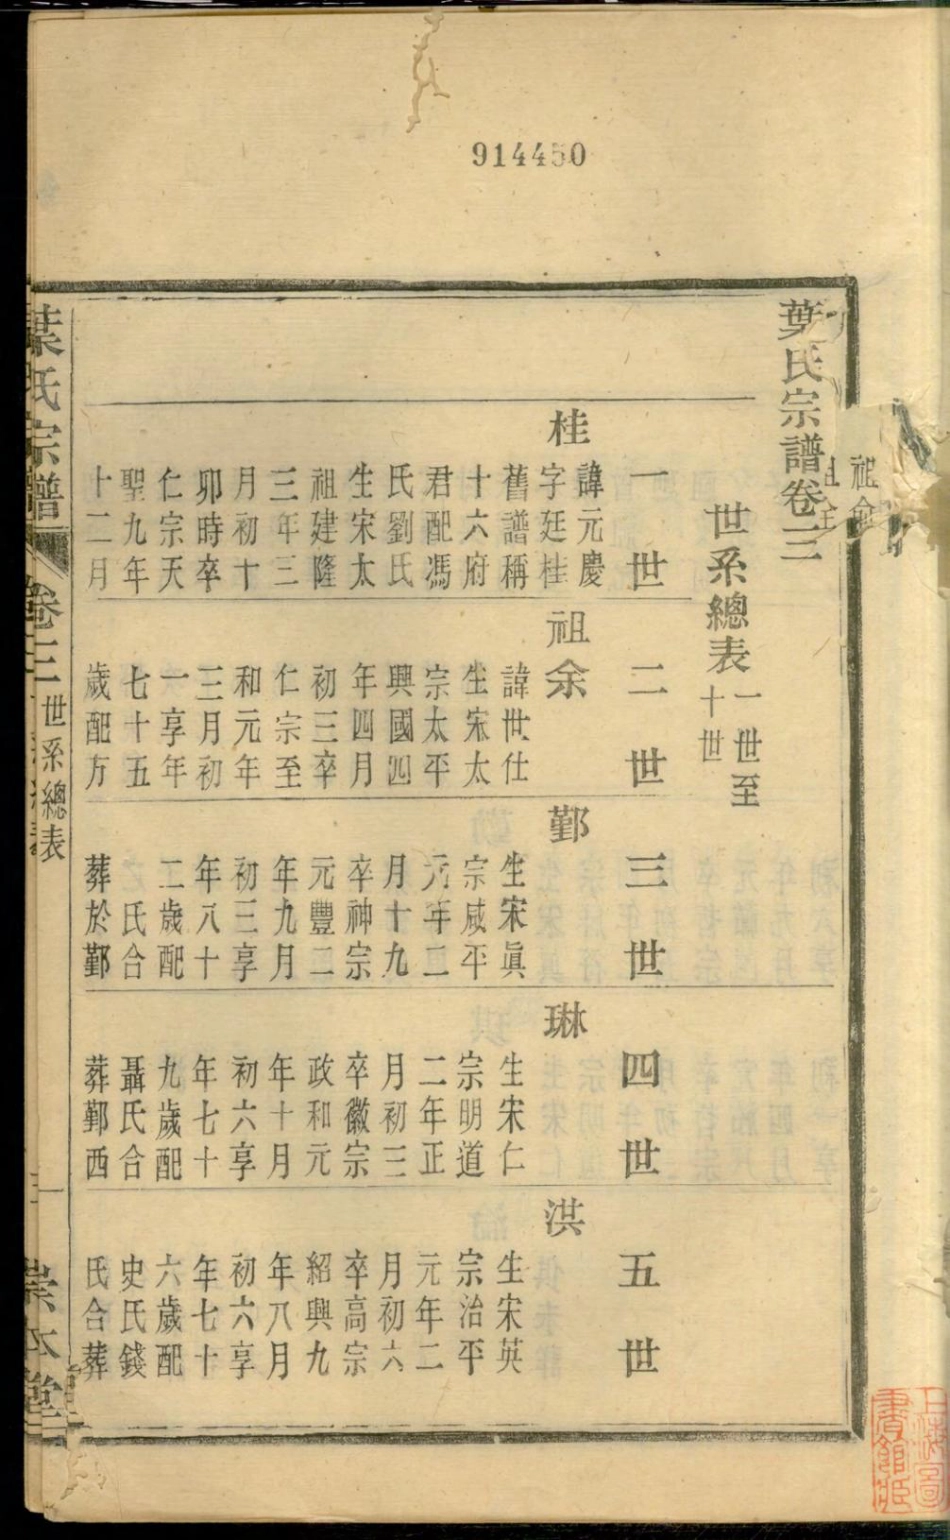 914450
葉氏宗譜卷三
世系總表
一世至
十世
一世
桂
諱元慶
字廷桂
舊譜稱
十六府
君配馮
氏劉氏
生宋太
祖建隆
三年三
月初十
卯時卒
仁宗天
聖九年
十二月
二世
祖余
諱世仕
生宋太
宗太平
興國四
年四月
初三卒
仁宗至
和元年
三月初
一享年
七十五
歲配方
三世
鄞
生宋眞
宗咸平
元年二
月十九
卒神宗
元豐二
年九月
初三享
年八十
二歲配
氏合
葬於鄞
四世
琳
生宋仁
宗明道
二年正
月初三
卒徽宗
政和元
年十月
初六享
年七十
九歲配
聶氏合
葬鄞西
五世
洪
生宋英
宗治平
元年二
月初六
卒高宗
紹興九
年八月
初六享
年七十
六歲配
史氏錢
氏合葬
葉氏宗譜
卷三
世系總表
一
崇本堂